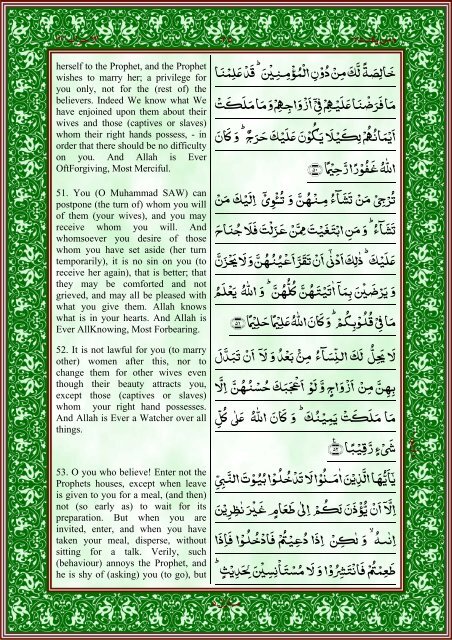 herself to the Prophet, and the Prophet
wishes to marry her; a privilege for
you only, not for the (rest of) the
believers. Indeed We know what We
have enjoined upon them about their
wives and those (captives or slaves)
whom their right hands possess, - in
order that there should be no difficulty
on you. And Allah is Ever
OftForgiving, Most Merciful.
51. You (O Muhammad SAW) can
postpone (the turn of) whom you will
of them (your wives), and you may
receive whom you will. And
whomsoever you desire of those
whom you have set aside (her turn
temporarily), it is no sin on you (to
receive her again), that is better; that
they may be comforted and not
grieved, and may all be pleased with
what you give them. Allah knows
what is in your hearts. And Allah is
Ever AllKnowing, Most Forbearing.
52. It is not lawful for you (to marry
other) women after this, nor to
change them for other wives even
though their beauty attracts you,
except those (captives or slaves)
whom your right hand possesses.
And Allah is Ever a Watcher over all
things.
53. O you who believe! Enter not the
Prophets houses, except when leave
is given to you for a meal, (and then)
not (so early as) to wait for its
preparation. But when you are
invited, enter, and when you have
taken your meal, disperse, without
sitting for a talk. Verily, such
(behaviour) annoys the Prophet, and
he is shy of (asking) you (to go), but
خَالِصَةً لَّكَ مِنْ دُوْنِ الْمُؤْمِنِيْنَ ؕ قَدْ عَلِمْنَا
مَا فَرَضْنَا عَلَيْهِمْ فِىْۤ اَزْوَاجِهِمْ وَمَا مَلَكَتْ
اَيْمَانُهُمْ لِكَيْلَا يَكُوْنَ عَلَيْكَ حَرَجٌ ؕ وَ كَانَ
اللّٰهُ غَفُوْرًا رَّحِيْمًا ۝
تُرْجِىْ مَنْ تَشَآءُ مِنْهُنَّ وَ تُــْٔوِىْۤ اِلَيْكَ مَنْ
تَشَآءُ ؕ وَ مَنِ ابْتَغَيْتَ مِمَّنْ عَزَلْتَ فَلَا جُنَاحَ
عَلَيْكَ ؕ ذٰلِكَ اَدْنٰۤى اَنْ تَقَرَّ اَعْيُنُهُنَّ وَلَا يَحْزَنَّ
وَ يَرْضَيْنَ بِمَاۤ اٰتَيْتَهُنَّ كُلُّهُنَّ ؕ وَ اللّٰهُ يَعْلَمُ
مَا فِىْ قُلُوْبِكُمْ ؕ وَكَانَ اللّٰهُ عَلِيْمًا حَلِيْمًا ۝
لَا يَحِلُّ لَكَ النِّسَآءُ مِنْۢ بَعْدُ وَ لَاۤ اَنْ تَبَدَّلَ
بِهِنَّ مِنْ اَزْوَاجٍ وَّ لَوْ اَعْجَبَكَ حُسْنُهُنَّ اِلَّا
مَا مَلَكَتْ يَمِيْنُكَ ؕ وَ كَانَ اللّٰهُ عَلٰى كُلِّ
شَىْءٍ رَّقِيْبًا ۝
يٰۤاَيُّهَا الَّذِيْنَ اٰمَنُوْا لَا تَدْخُلُوْا بُيُوْتَ النَّبِىِّ
اِلَّاۤ اَنْ يُّؤْذَنَ لَكُمْ اِلٰى طَعَامٍ غَيْرَ نٰظِرِيْنَ
اِنٰٮهُ ۙ وَ لٰكِنْ اِذَا دُعِيْتُمْ فَادْخُلُوْا فَاِذَا
طَعِمْتُمْ فَانْتَشِرُوْا وَ لَا مُسْتَاْنِسِيْنَ لِحَدِيْثٍ ؕ